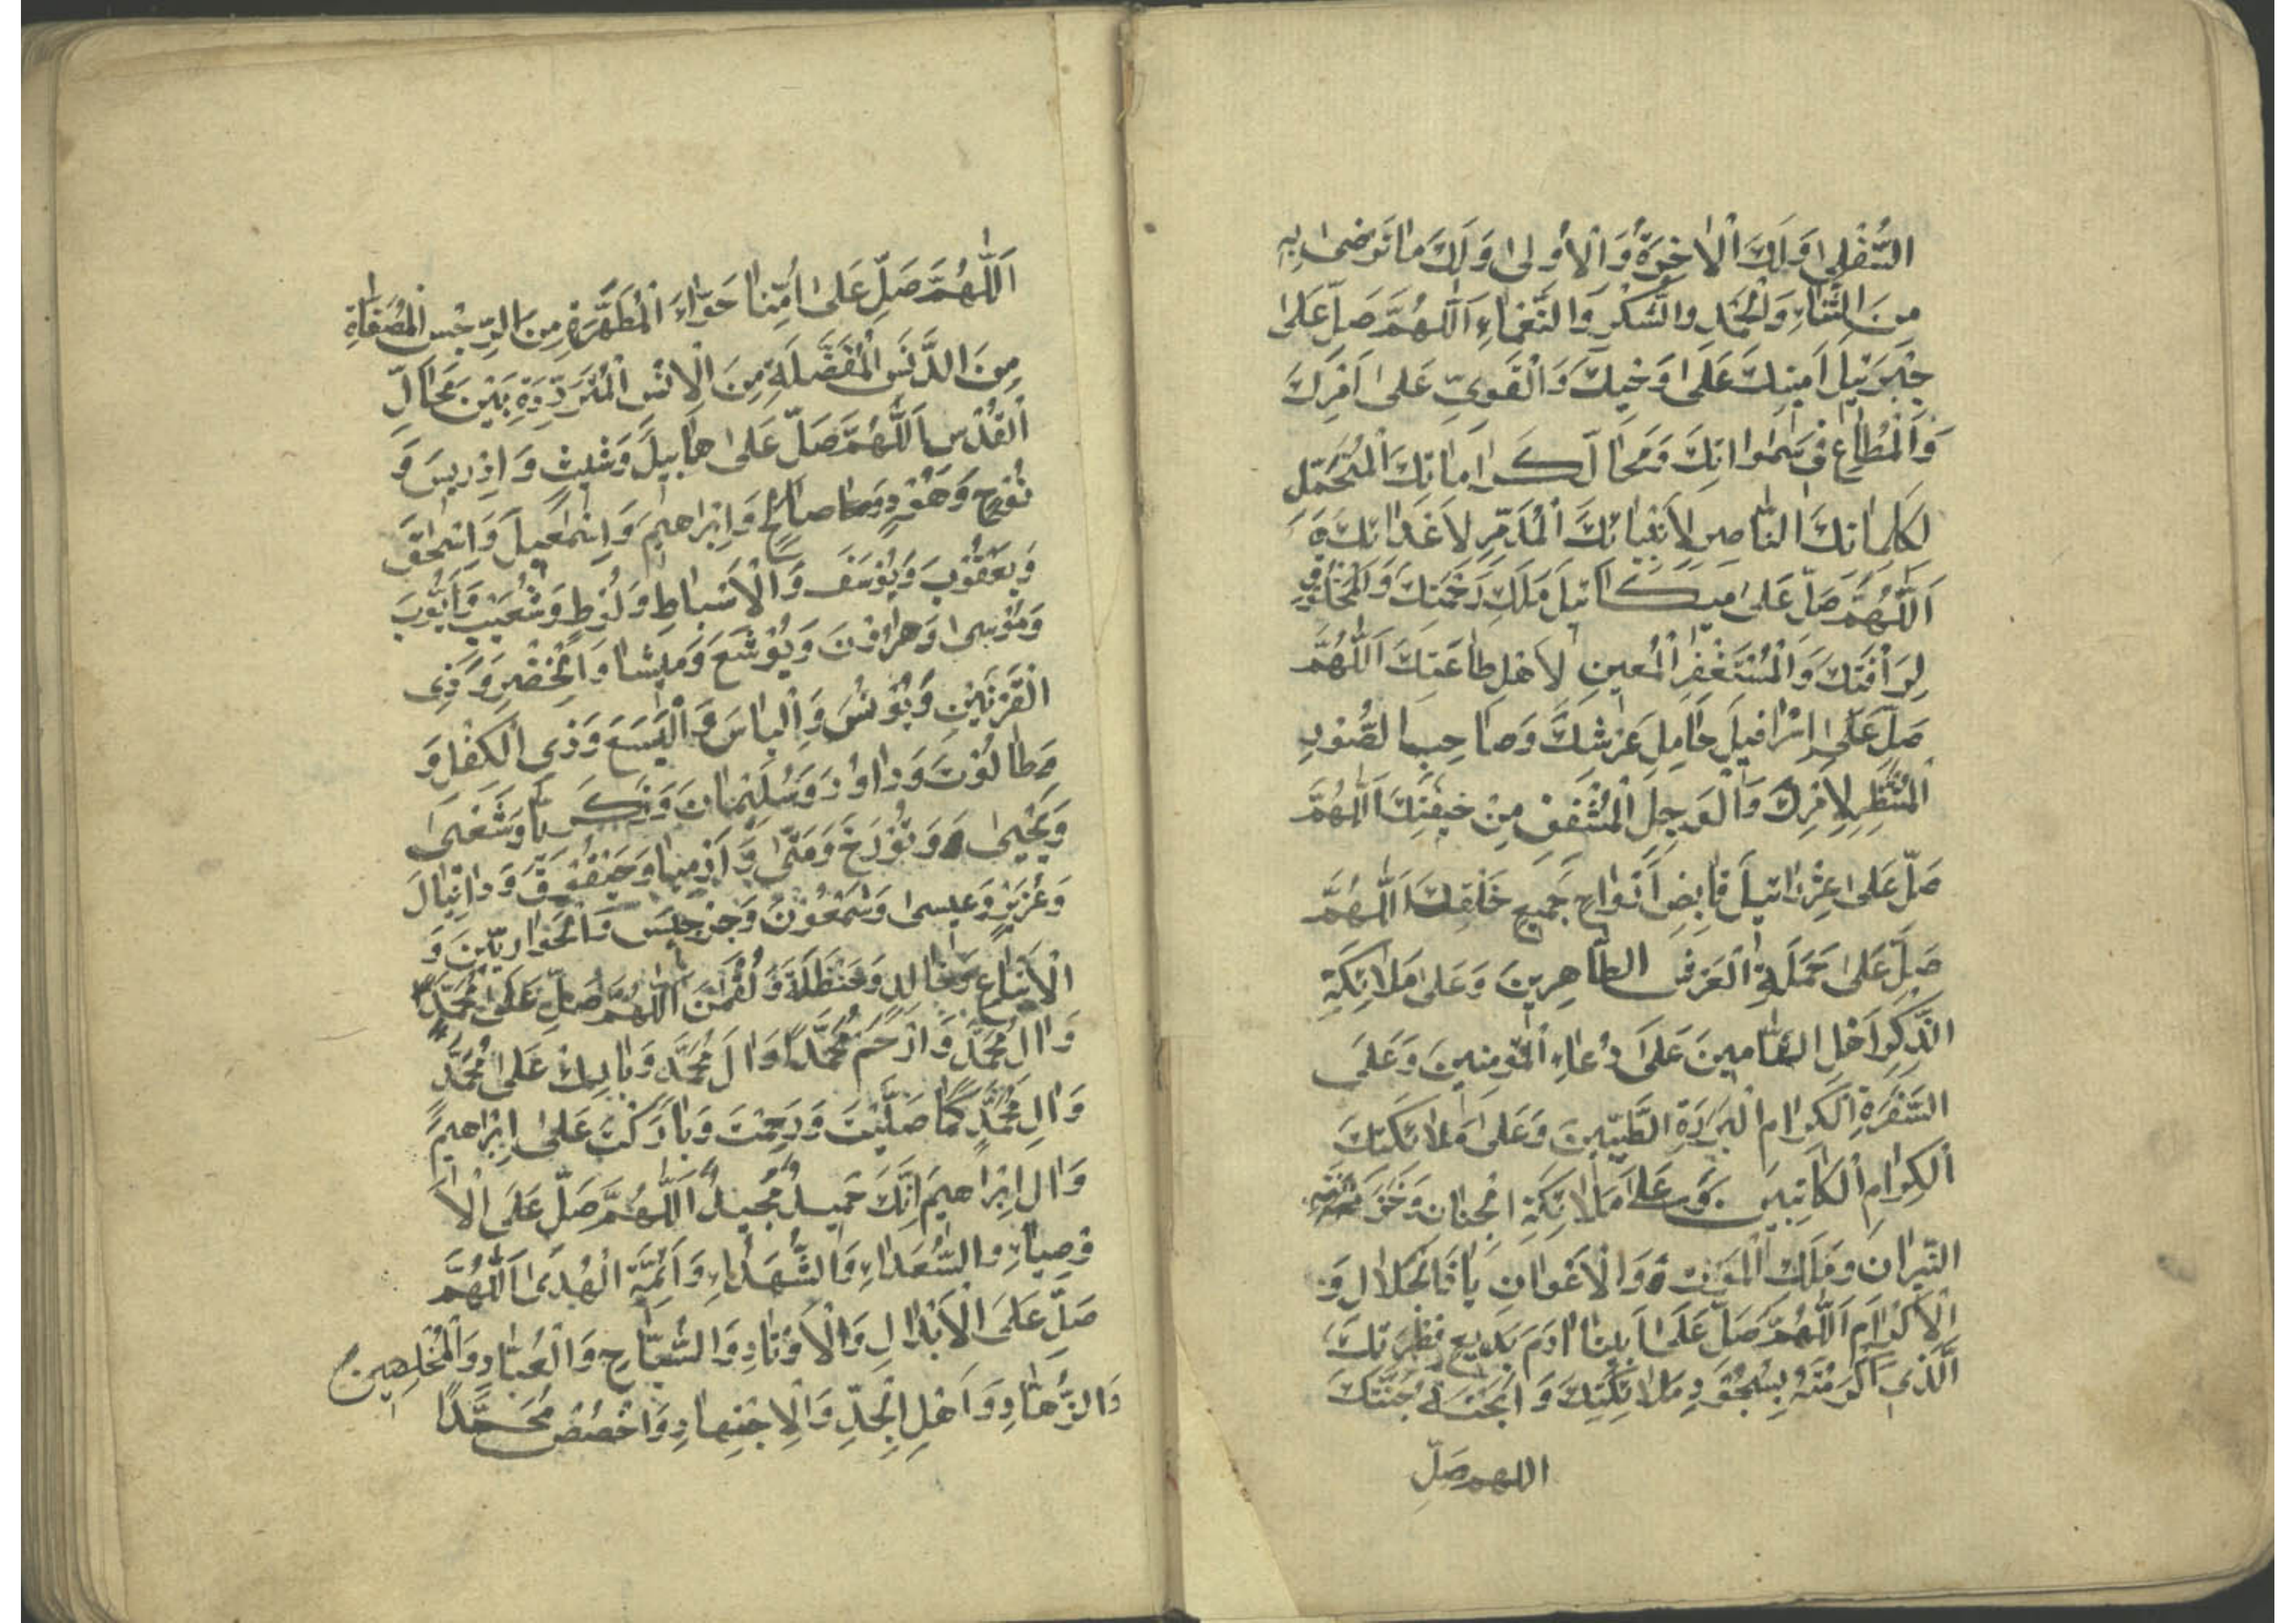 السُّفْلىٰ وَلَكَ الْاٰخِرَةُ وَالْاُولىٰ وَلَكَ مَا تَرْضىٰ بِهِ
مِنَ الثَّنَاءِ وَالْحَمْدِ وَالشُّكْرِ وَالنَّعْمَاءِ اَللّٰهُمَّ صَلِّ عَلىٰ
جَبْرَئيلَ اَمينِكَ عَلىٰ وَحْيِكَ وَالْقَوِيِّ عَلىٰ اَمْرِكَ
وَالْمُطَاعِ فى سَمٰوَاتِكَ وَمَحَالِّ كَرَامَاتِكَ الْمُتَحَمِّلِ
لِكَلِمَاتِكَ النَّاصِرِ لِاَنْبِيَائِكَ الْمُدَمِّرِ لِاَعْدَائِكَ
اَللّٰهُمَّ صَلِّ عَلىٰ ميكَائيلَ مَلَكِ رَحْمَتِكَ وَالْمَخْلُوقِ
لِرَاْفَتِكَ وَالْمُسْتَغْفِرِ الْمُعينِ لِاَهْلِ طَاعَتِكَ اَللّٰهُمَّ
صَلِّ عَلىٰ اِسْرَافيلَ حَامِلِ عَرْشِكَ وَصَاحِبِ الصُّورِ
الْمُنْتَظِرِ لِاَمْرِكَ وَالْوَجِلِ الْمُشْفِقِ مِنْ خيفَتِكَ اَللّٰهُمَّ
صَلِّ عَلىٰ عِزْرَائيلَ قَابِضِ اَرْوَاحِ جَميعِ خَلْقِكَ اَللّٰهُمَّ
صَلِّ عَلىٰ حَمَلَةِ الْعَرْشِ الطَّاهِرينَ وَعَلىٰ مَلَائِكَةِ
الذِّكْرِ اَهْلِ التَّامينَ عَلىٰ دُعَاءِ الْمُؤْمِنينَ وَعَلَى
السَّفَرَةِ الْكِرَامِ الْبَرَرَةِ الطَّيِّبينَ وَعَلىٰ مَلَائِكَتِكَ
الْكِرَامِ الْكَاتِبينَ وَعَلىٰ مَلَائِكَةِ الْجِنَانِ وَخَزَنَةِ
النّيرَانِ وَمَلَكِ الْمَوْتِ وَالْاَعْوَانِ يَا ذَا الْجَلَالِ وَ
الْاِكْرَامِ اَللّٰهُمَّ صَلِّ عَلىٰ اَبينَا اٰدَمَ بَديعِ فِطْرَتِكَ
الَّذى اَكْرَمْتَهُ بِسُجُودِ مَلَائِكَتِكَ وَاَبَحْتَهُ جَنَّتَكَ
اللهم صَلِّ
اَللّٰهُمَّ صَلِّ عَلىٰ اُمِّنَا حَوَّاءَ الْمُطَهَّرَةِ مِنَ الرِّجْسِ الْمُصَفَّاةِ
مِنَ الدَّنَسِ الْمُفَضَّلَةِ مِنَ الْاِنْسِ الْمُتَرَدِّدَةِ بَيْنَ مَحَالِّ
الْقُدْسِ اَللّٰهُمَّ صَلِّ عَلىٰ هَابيلَ وَشيثٍ وَاِدْريسَ وَ
نُوحٍ وَهُودٍ وَصَالِحٍ وَاِبْرَاهيمَ وَاِسْمٰعيلَ وَاِسْحٰقَ
وَيَعْقُوبَ وَيُوسُفَ وَالْاَسْبَاطِ وَلُوطٍ وَشُعَيْبٍ وَاَيُّوبَ
وَمُوسىٰ وَهَارُونَ وَيُوشَعَ وَميشَا وَالْخِضْرِ وَذِى
الْقَرْنَيْنِ وَيُونُسَ وَاِلْيَاسَ وَالْيَسَعَ وَذِى الْكِفْلِ وَ
طَالُوتَ وَدَاوُدَ وَسُلَيْمَانَ وَزَكَرِيَّا وَشَعْيَىٰ
وَيَحْيىٰ وَتُورَخَ وَمَتّىٰ وَاَرْمِيَا وَحَيْقُوقَ وَدَانِيَالَ
وَعُزَيْرٍ وَعيسىٰ وَشَمْعُونَ وَجِرْجيسَ وَالْحَوَارِيّينَ وَ
الْاَتْبَاعِ وَخَالِدٍ وَحَنْظَلَةَ وَلُقْمٰنَ اَللّٰهُمَّ صَلِّ عَلىٰ مُحَمَّدٍ
وَاٰلِ مُحَمَّدٍ وَارْحَمْ مُحَمَّدًا وَاٰلَ مُحَمَّدٍ وَبَارِكْ عَلىٰ مُحَمَّدٍ
وَاٰلِ مُحَمَّدٍ كَمَا صَلَّيْتَ وَرَحِمْتَ وَبَارَكْتَ عَلىٰ اِبْرَاهيمَ
وَاٰلِ اِبْرَاهيمَ اِنَّكَ حَميدٌ مَجيدٌ اَللّٰهُمَّ صَلِّ عَلَى الْاَ
وْصِيَاءِ وَالسُّعَدَاءِ وَالشُّهَدَاءِ وَاَئِمَّةِ الْهُدىٰ اَللّٰهُمَّ
صَلِّ عَلَى الْاَبْدَالِ وَالْاَوْتَادِ وَالسُّيَّاحِ وَالْعُبَّادِ وَالْمُخْلِصينَ
وَالزُّهَّادِ وَاَهْلِ الْجِدِّ وَالْاِجْتِهَادِ وَاخْصُصْ مُحَمَّدًا